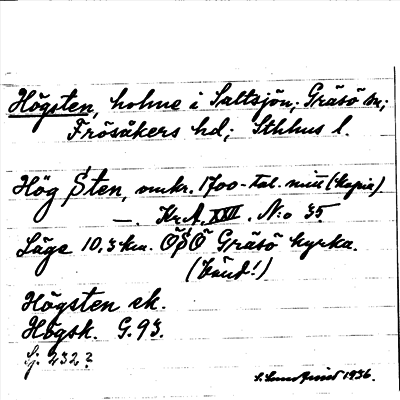 Högsten, holme i Saltsjön; Gräsö sn;
Frösåkers hd; Sthlms l.
Hög Sten, omkr. 1700-tal. mitt (kopia)
—. Kr.A. XXII. N:o 35.
Läge 10,3 km. ÖSÖ Gräsö kyrka.
(känd!)
Högsten ek.
Högsk. G. 93.
Sj. 232?
1936.